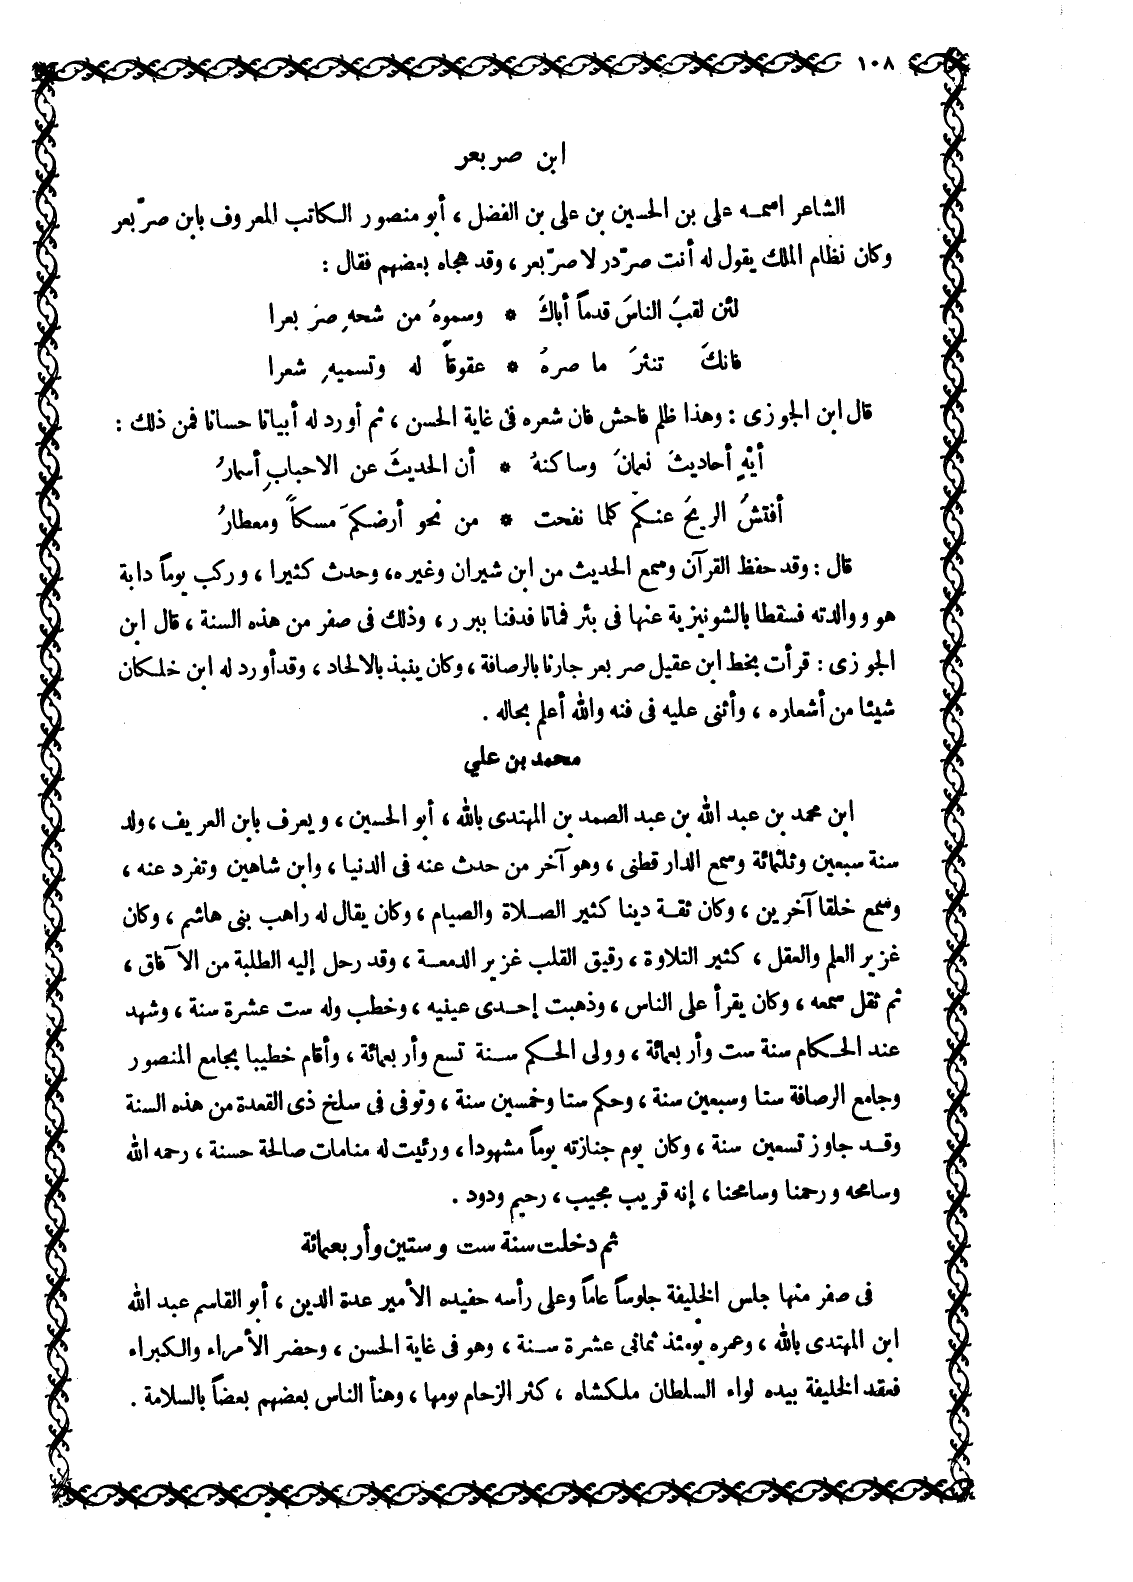 ١٠٨
ابن صربعر
الشاعر اسمه على بن الحسين بن على بن الفضل ، أبو منصور الكاتب المعروف بابن صرّبعر
وكان نظام الملك يقول له أنت صرّدر لا صرّبعر ، وقد هجاه بعضهم فقال :
لئن لقبَ الناسَ قدماً أباكَ * وسموهُ من شحهِ صرَ بعرا
فانكَ تنثرَ ما صرهُ * عقوقاً له وتسميهِ شعرا
قال ابن الجوزى : وهذا ظلم فاحش فان شعره فى غاية الحسن ، ثم أورد له أبياتا حسانا فمن ذلك :
أيْهٍ أحاديثَ نعمانَ وساكنهُ * أن الحديثَ عن الاحبابِ أسمارُ
أفتشُ الريحَ عنكم كلما نفحت * من نحو أرضكمَ مسكاً ومعطارُ
قال : وقد حفظ القرآن وسمع الحديث من ابن شيران وغيره ، وحدث كثيرا ، وركب يوماً دابة
هو ووالدته فسقطا بالشونيزية عنها فى بئر فماتا فدفنا ببرر ، وذلك فى صفر من هذه السنة ، قال ابن
الجوزى : قرأت بخط ابن عقيل صربعر جارنا بالرصافة ، وكان ينبذ بالالحاد ، وقد أورد له ابن خلكان
شيئا من أشعاره ، وأثنى عليه فى فنه والله أعلم بحاله .
محمد بن علي
ابن محمد بن عبد الله بن عبد الصمد بن المهتدى بالله ، أبو الحسين ، ويعرف بابن العريف ، ولد
سنة سبعين وثلثمائة وسمع الدار قطنى ، وهو آخر من حدث عنه فى الدنيا ، وابن شاهين وتفرد عنه ،
وسمع خلقا آخرين ، وكان ثقة دينا كثير الصلاة والصيام ، وكان يقال له راهب بنى هاشم ، وكان
غزير العلم والعقل ، كثير التلاوة ، رقيق القلب غزير الدمعة ، وقد رحل إليه الطلبة من الآفاق ،
ثم ثقل سمعه ، وكان يقرأ على الناس ، وذهبت إحدى عينيه ، وخطب وله ست عشرة سنة ، وشهد
عند الحكام سنة ست وأربعمائة ، وولى الحكم سنة تسع وأربعمائة ، وأقام خطيبا بجامع المنصور
وجامع الرصافة ستا وسبعين سنة ، وحكم ستا وخمسين سنة ، وتوفى فى سلخ ذى القعدة من هذه السنة
وقد جاوز تسعين سنة ، وكان يوم جنازته يوماً مشهودا ، ورئيت له منامات صالحة حسنة ، رحمه الله
وسامحه ورحمنا وسامحنا ، إنه قريب مجيب ، رحيم ودود .
ثم دخلت سنة ست وستين وأربعمائة
فى صفر منها جلس الخليفة جلوساً عاماً وعلى رأسه حفيده الأمير عدة الدين ، أبو القاسم عبد الله
ابن المهتدى بالله ، وعمره يومئذ ثمانى عشرة سنة ، وهو فى غاية الحسن ، وحضر الأمراء والكبراء
فعقد الخليفة بيده لواء السلطان ملكشاه ، كثر الزحام يومها ، وهنأ الناس بعضهم بعضاً بالسلامة .